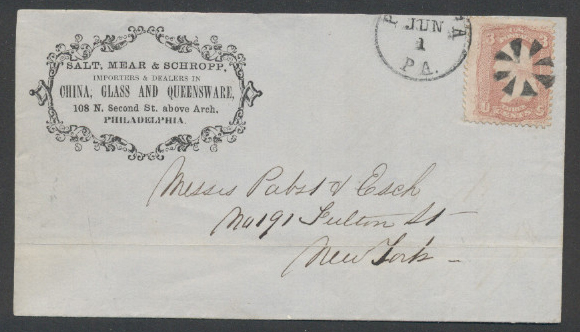 SALT, MEAR & SCHROPP,
IMPORTERS & DEALERS IN
CHINA, GLASS AND QUEENSWARE,
108 N. Second St. above Arch,
PHILADELPHIA.
JUN
1
PA.
3 3
U S
Messrs Pabst & Esch
No 191 Fulton St
New York